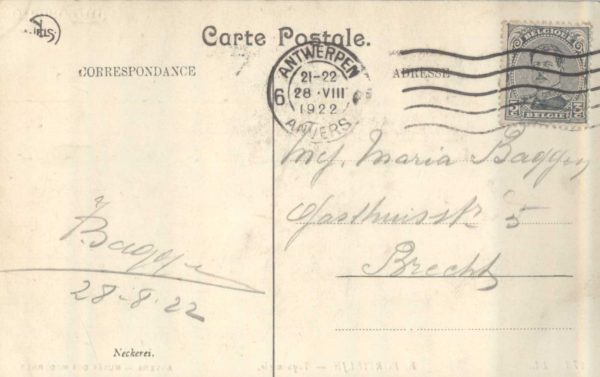 Carte Postale.
CORRESPONDANCE
ADRESSE
ANTWERPEN
21-22
28 ·VIII
1922
6
ANVERS
BELGIQUE
BELGIË
Mej. Maria Baggen
Gasthuisstr 5
Brecht
28-8-22
Neckerei.